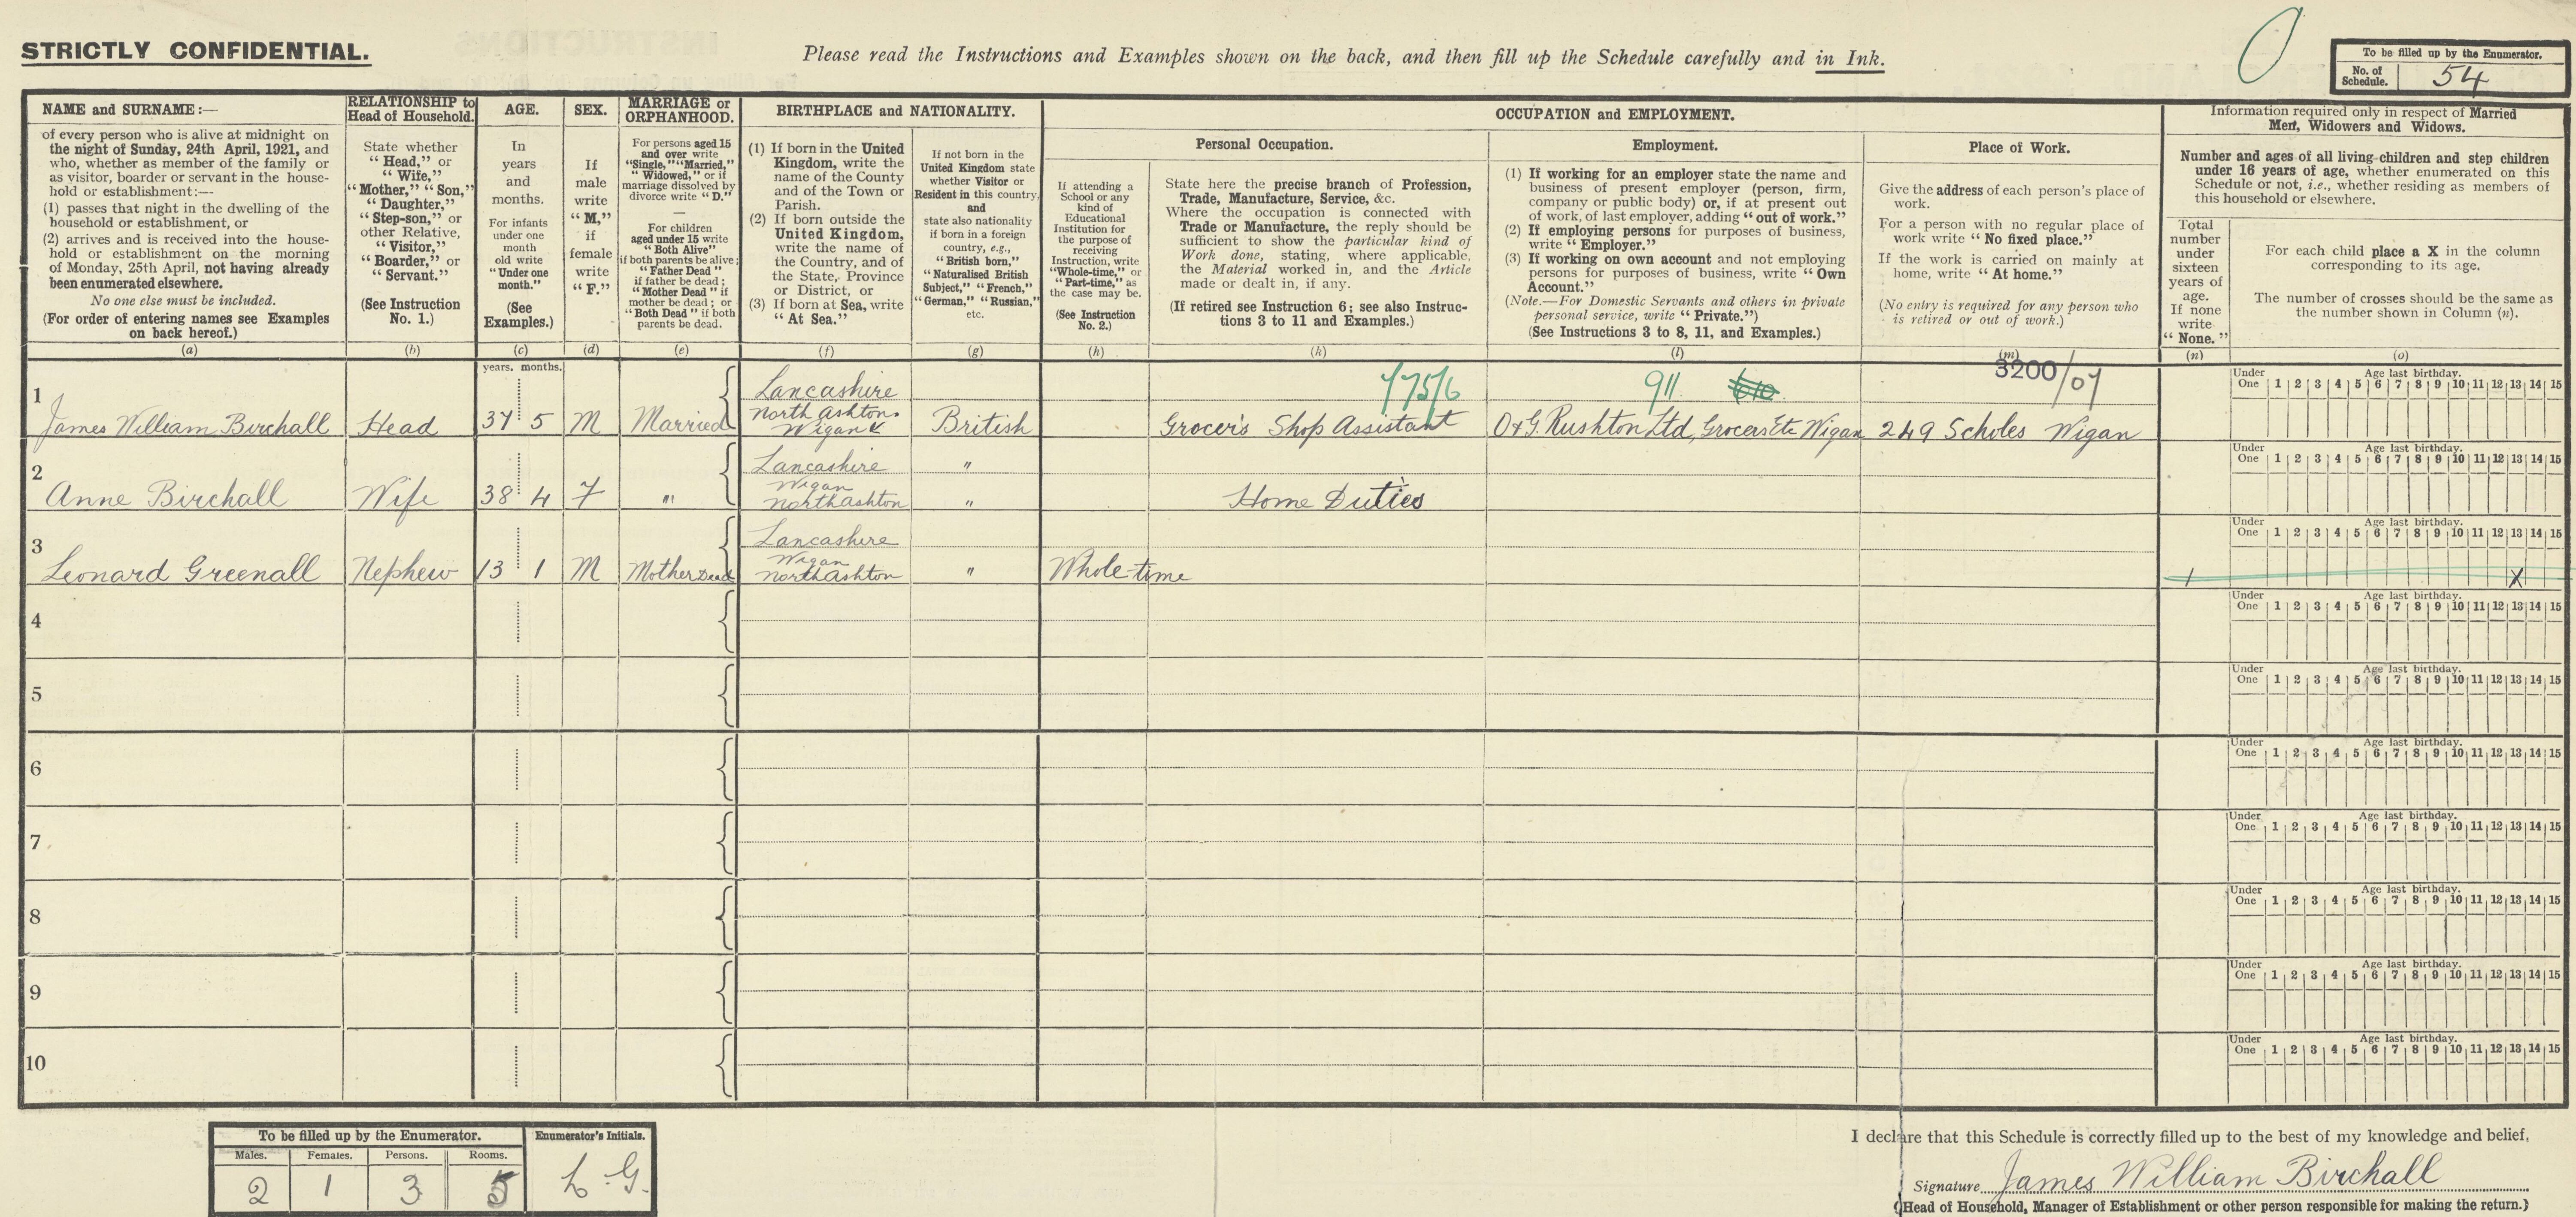 STRICTLY CONFIDENTIAL.
Please read the Instructions and Examples shown on the back, and then fill up the Schedule carefully and in Ink.
To be filled up by the Enumerator.
No. of Schedule. 54
NAME and SURNAME:—
of every person who is alive at midnight on
the night of Sunday, 24th April, 1921, and
who, whether as member of the family or
as visitor, boarder or servant in the house-
hold or establishment:—
(1) passes that night in the dwelling of the
household or establishment, or
(2) arrives and is received into the house-
hold or establishment on the morning
of Monday, 25th April, not having already
been enumerated elsewhere.
No one else must be included.
(For order of entering names see Examples
on back hereof.)
(a)
RELATIONSHIP to
Head of Household.
State whether
"Head," or
"Wife,"
"Mother," "Son,"
"Daughter,"
"Step-son," or
other Relative,
"Visitor,"
"Boarder," or
"Servant."
(See Instruction
No. 1.)
(b)
AGE.
In
years
and
months.
For infants
under one
month
old write
"Under one
month."
(See
Examples.)
(c)
SEX.
If
male
write
"M,"
if
female
write
"F."
(d)
MARRIAGE or
ORPHANHOOD.
For persons aged 15
and over write
"Single," "Married,"
"Widowed," or if
marriage dissolved by
divorce write "D."
—
For children
aged under 15 write
"Both Alive"
if both parents be alive;
"Father Dead"
if father be dead;
"Mother Dead" if
mother be dead; or
"Both Dead" if both
parents be dead.
(e)
BIRTHPLACE and NATIONALITY.
(1) If born in the United
Kingdom, write the
name of the County
and of the Town or
Parish.
(2) If born outside the
United Kingdom,
write the name of
the Country, and of
the State, Province
or District, or
(3) If born at Sea, write
"At Sea."
(f)
If not born in the
United Kingdom state
whether Visitor or
Resident in this country,
and
state also nationality
if born in a foreign
country, e.g.,
"British born,"
"Naturalised British
Subject," "French,"
"German," "Russian,"
etc.
(g)
OCCUPATION and EMPLOYMENT.
If attending a
School or any
kind of
Educational
Institution for
the purpose of
receiving
Instruction, write
"Whole-time," or
"Part-time," as
the case may be.
(See Instruction
No. 2.)
(h)
Personal Occupation.
State here the precise branch of Profession,
Trade, Manufacture, Service, &c.
Where the occupation is connected with
Trade or Manufacture, the reply should be
sufficient to show the particular kind of
Work done, stating, where applicable,
the Material worked in, and the Article
made or dealt in, if any.
(If retired see Instruction 6; see also Instruc-
tions 3 to 11 and Examples.)
(k)
Employment.
(1) If working for an employer state the name and
business of present employer (person, firm,
company or public body) or, if at present out
of work, of last employer, adding "out of work."
(2) If employing persons for purposes of business,
write "Employer."
(3) If working on own account and not employing
persons for purposes of business, write "Own
Account."
(Note.—For Domestic Servants and others in private
personal service, write "Private.")
(See Instructions 3 to 8, 11, and Examples.)
(l)
Place of Work.
Give the address of each person's place of
work.
For a person with no regular place of
work write "No fixed place."
If the work is carried on mainly at
home, write "At home."
(No entry is required for any person who
is retired or out of work.)
(m)
Information required only in respect of Married
Men, Widowers and Widows.
Number and ages of all living children and step children
under 16 years of age, whether enumerated on this
Schedule or not, i.e., whether residing as members of
this household or elsewhere.
Total
number
under
sixteen
years of
age.
If none
write
"None."
(n)
For each child place a X in the column
corresponding to its age.
The number of crosses should be the same as
the number shown in Column (n).
(o)
years. months.
775/6 911 610 3200/07
1 James William Birchall Head 37 5 M Married Lancashire North Ashton Wigan British Grocer's Shop Assistant O & G. Rushton Ltd, Grocers Etc Wigan 249 Scholes Wigan
Under One Age last birthday. 1 2 3 4 5 6 7 8 9 10 11 12 13 14 15
2 Anne Birchall Wife 38 4 F " Lancashire Wigan North Ashton " " Home Duties
Under One Age last birthday. 1 2 3 4 5 6 7 8 9 10 11 12 13 14 15
3 Leonard Greenall Nephew 13 1 M Mother Dead Lancashire Wigan North Ashton " Whole-time 1 X
Under One Age last birthday. 1 2 3 4 5 6 7 8 9 10 11 12 13 14 15
4
Under One Age last birthday. 1 2 3 4 5 6 7 8 9 10 11 12 13 14 15
5
Under One Age last birthday. 1 2 3 4 5 6 7 8 9 10 11 12 13 14 15
6
Under One Age last birthday. 1 2 3 4 5 6 7 8 9 10 11 12 13 14 15
7
Under One Age last birthday. 1 2 3 4 5 6 7 8 9 10 11 12 13 14 15
8
Under One Age last birthday. 1 2 3 4 5 6 7 8 9 10 11 12 13 14 15
9
Under One Age last birthday. 1 2 3 4 5 6 7 8 9 10 11 12 13 14 15
10
Under One Age last birthday. 1 2 3 4 5 6 7 8 9 10 11 12 13 14 15
To be filled up by the Enumerator. Enumerator's Initials.
Males. Females. Persons. Rooms.
2 1 3 5 L.G.
I declare that this Schedule is correctly filled up to the best of my knowledge and belief,
Signature James William Birchall
(Head of Household, Manager of Establishment or other person responsible for making the return.)